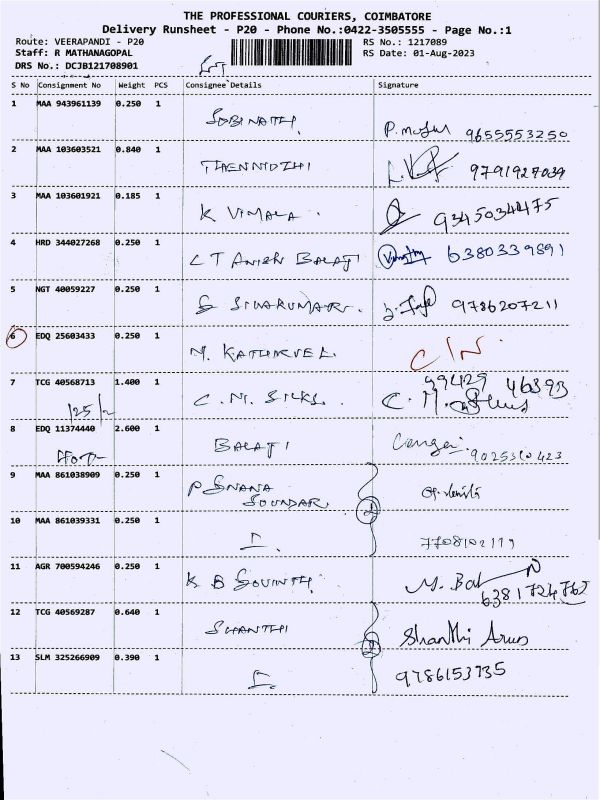 THE PROFESSIONAL COURIERS, COIMBATORE
Delivery Runsheet - P20 - Phone No.:0422-3505555 - Page No.:1
Route: VEERAPANDI - P20 RS No.: 1217089
Staff: R MATHANAGOPAL RS Date: 01-Aug-2023
DRS No.: DCJB121708901
S No Consignment No Weight PCS Consignee Details Signature
1 MAA 943961139 0.250 1 9655553250
2 MAA 103603521 0.840 1 9791927039
3 MAA 103601921 0.185 1 K VIMALA . 9345034475
4 HRD 344027268 0.250 1 C T ANISH BALAJI 6380339891
5 NGT 40059227 0.250 1 S SIVAKUMAR. 9786207211
6 EDQ 25603433 0.250 1 M. KATHIRVEL C/N.
7 TCG 40568713 1.400 1 C. M. SILKS. 99429 46393
125/-
8 EDQ 11374440 2.600 1 BALAJI 9025310423
9 MAA 861038909 0.250 1 P GNANA SOUNDAR 2
10 MAA 861039331 0.250 1 7708102119
11 AGR 700594246 0.250 1 K B GOVINTH 6381724762
12 TCG 40569287 0.640 1 SHANTHI 2 Shanthi Arus
13 SLM 325266909 0.390 1 9786153735